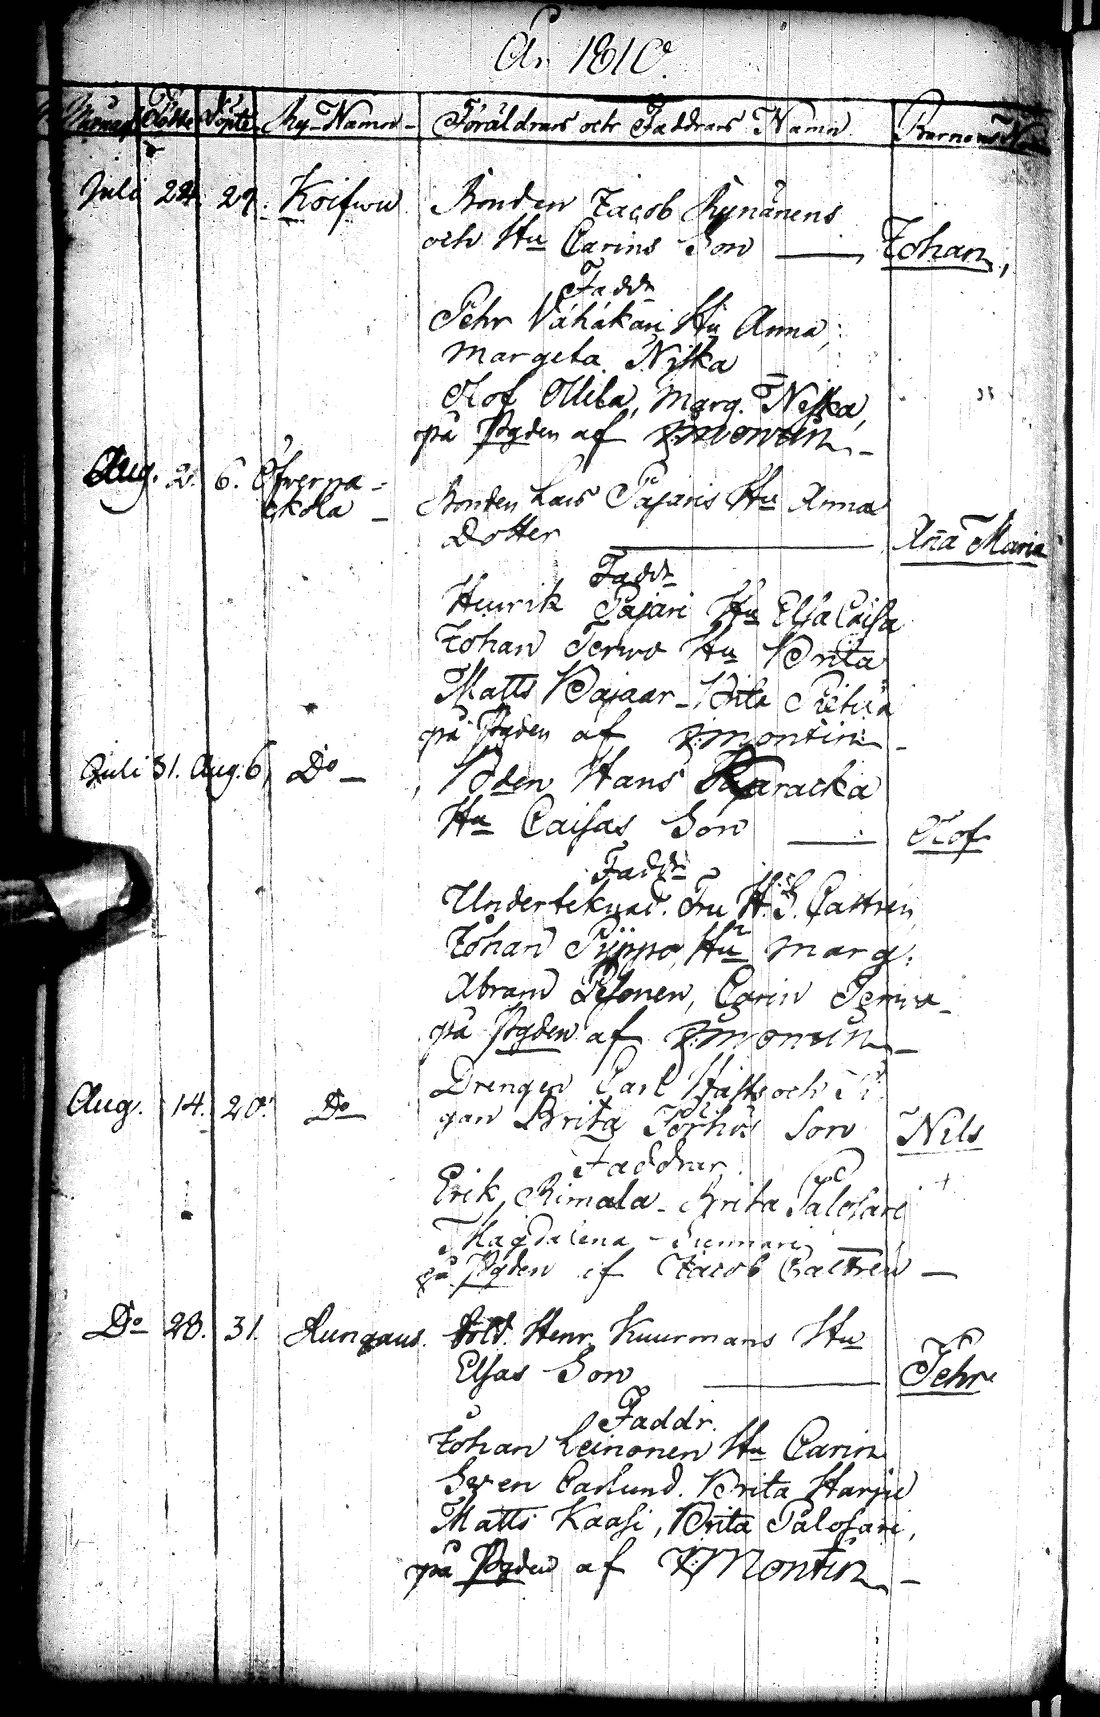 År 1810.
Månad Födde Döpte By-Namn Föräldrars och Faddrars Namn Barnens Namn
Juli 24. 29. Koifwu Bonden Jacob Rynänens
och Hu Carins Son — Johan,
Faddr
Pehr Vähäkari Hu Anna,
Margeta Niska
Olof Ollila, Marg. Niska,
på Pgden af J. Montin
Aug. 2. 6. Öfverpa=
ckola — Bonden Lars Pajaris Hu Anna
Dotter — Aña Maria
Faddr
Henrik Pajari Hu Elsa Caisa
Johan Terwo Hu Brita
Matts Bajaar - Brita
på Pgden af J. Montin
Juli 31. Aug. 6, Do — Bden Hans Karacka
Hu Caisas Son — Olof
Faddr
Underteknad. Fru H. S. Castren,
Johan Pyppo, Hu Marg.
Abram Pesonen, Carin Terwo
på Pgden af J. Montin
Aug. 14. 20. Do Drengen Carl och Pi
gan Brita Son Nils
Faddrar
Erik Rimala - Brita Palosari
Magdalena
på Pgden af Jacob Castrén —
Do 28. 31. Rungaus. Sold. Henr. Kuurmans Hu
Elsas Son — Pehr
Faddr.
Johan Leinonen Hu Carin
Sven Caslund. Brita Harju
Matts Kaasi, Brita Palosari,
på Pgden af J. Montin —